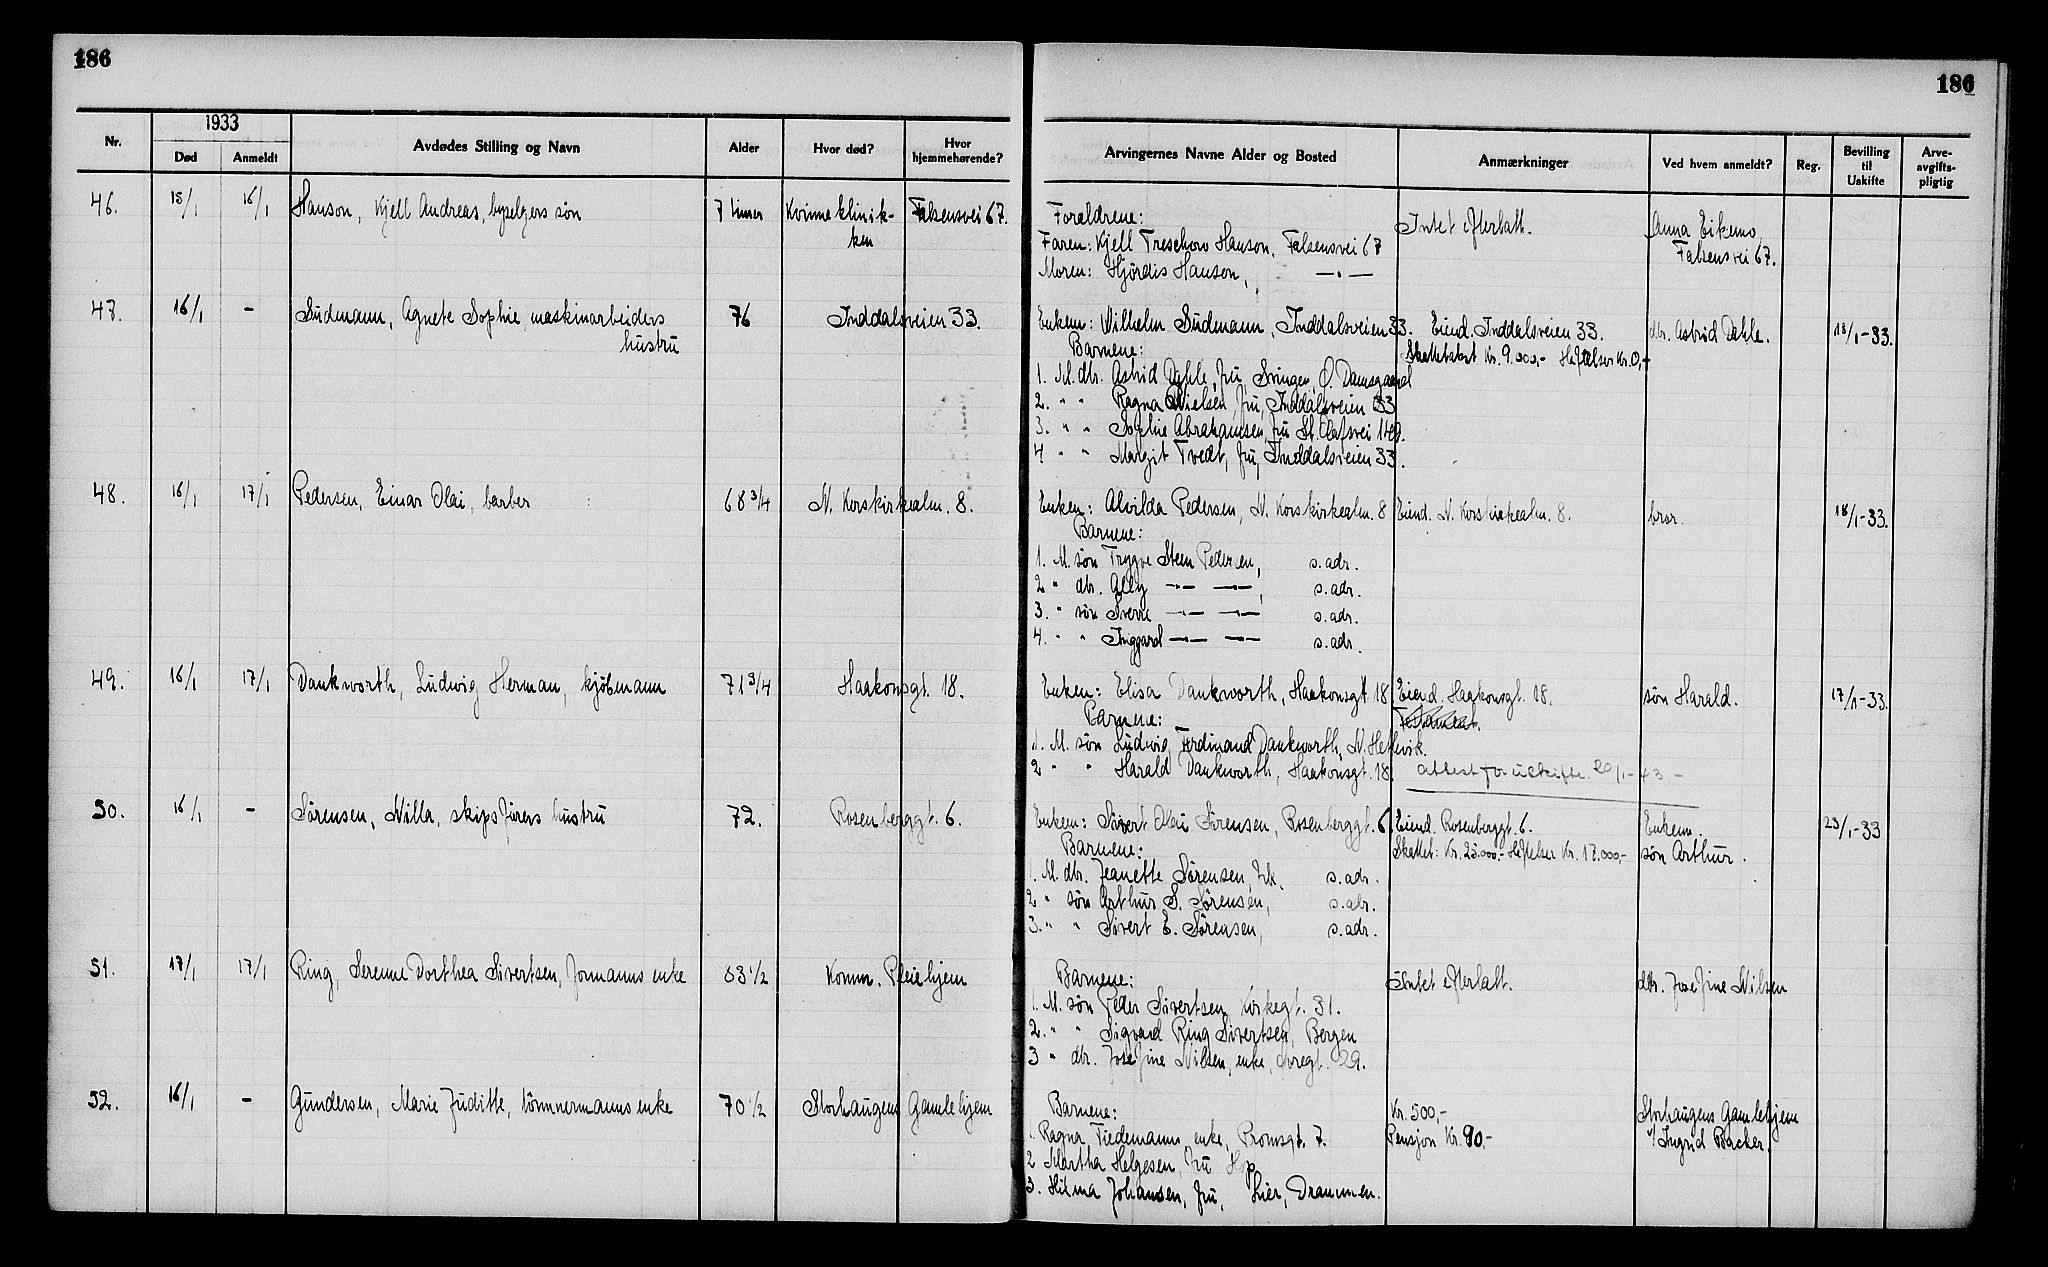 186
186
Nr.
1933
Død
Anmeldt
Avdødes Stilling og Navn
Alder
Hvor død?
Hvor hjemmehørende?
Arvingernes Navne Alder og Bosted
Anmærkninger
Ved hvem anmeldt?
Reg.
Bevilling til Uskifte
Arve-avgifts-pligtig
46. 15/1 16/1 Hanson, Kjell Andreas, byselgers søn 7 timer Kvinneklinik- Falsensvei 67.
ken
Foreldrene: Intet efterlatt. Anna Eikemo,
Faren: Kjell Treschow Hanson, Falsensvei 67 Falsensvei 67.
Moren: Hjördis Hanson, — " —
47. 16/1 - Sudmann, Agnete Sophie, maskinarbeiders 76 Inddalsveien 33.
hustru
Enkem: Vilhelm Sudmann, Inddalsveien 33. Eiend. Inddalsveien 33. dtr. Astrid Dahle. 18/1-33.
Barnene: Skattetakst Kr. 9.000,- Heftelser Kr. 0,-
1. M. dtr. Astrid Dahle, fru, Svingen, Ø. Damsgaard
2. " " Ragna Nielsen, fru, Inddalsveien 33
3. " " Sophie Abrahamsen, fru St. Olafsvei 149.
4 " " Margit Tvedt, fru, Inddalsveien 33.
48. 16/1 17/1 Pedersen, Einar Olai, barber 68 3/4 N. Korskirkealm. 8.
Enken: Alvilda Pedersen, N. Korskirkealm. 8 Eiend. N. Korskirkealm. 8. bror. 18/1-33.
Barnene:
1. M. søn Trygve Steen Pedersen, s. adr.
2 " dtr. Aley — " — — " —, s. adr.
3. " søn Sverre — " — — " — s. adr.
4. " " Inggard — " — — " — s. adr.
49. 16/1 17/1 Dankworth, Ludwig Herman, kjøbmann 71 3/4 Haakonsgt. 18.
Enken: Elisa Dankworth, Haakonsgt 18 Eiend. Haakonsgt. 18. søn Harald. 17/1-33.
Barnene: Testament.
1. M. søn Ludwig Ferdinand Dankworth, N. Hetlevik.
2 " " Harald Dankworth, Haakonsgt. 18. attest for uskifte 20/1-43 -
50. 16/1 - Sørensen, Nilla, skipsførers hustru 72. Rosenberggt. 6.
Enkem: Sivert Olai Sørensen, Rosenberggt. 6. Eiend. Rosenberggt. 6. Enkem. 23/1-33
Barnene: Skattet: Kr. 25.000,- Heftelser Kr. 17.000,- søn Arthur.
1. M. dtr. Jeanette Sørensen, frk. s. adr.
2 " søn Arthur S. Sørensen, s. adr.
3. " " Sivert E. Sørensen, s. adr.
51. 17/1 17/1 Ring, Serenne Dorthea Sivertsen, formanns enke 83 1/2 Komm. Pleiehjem
Barnene: Intet efterlatt. dtr. Josefine Nilsen
1. M. søn Peder Sivertsen, Kirkegt. 31.
2. " " Sigvard Ring Sivertsen, Bergen
3 " dtr. Josefine Nilsen, enke, Øvregt. 29.
52. 16/1 - Gundersen, Marie Juditte, tømmermanns enke 70 1/2 Storhaugens Gamlehjem
Barnene: Kr. 500,- Storhaugens Gamlehjem
1. Ragna Tiedemann, enke, Promsgt. 7. Pensjon Kr. 90,- v/ Ingrid Backer.
2 Martha Helgesen, fru Hop
3. Hilma Johansen, fru, Lier, Drammen.